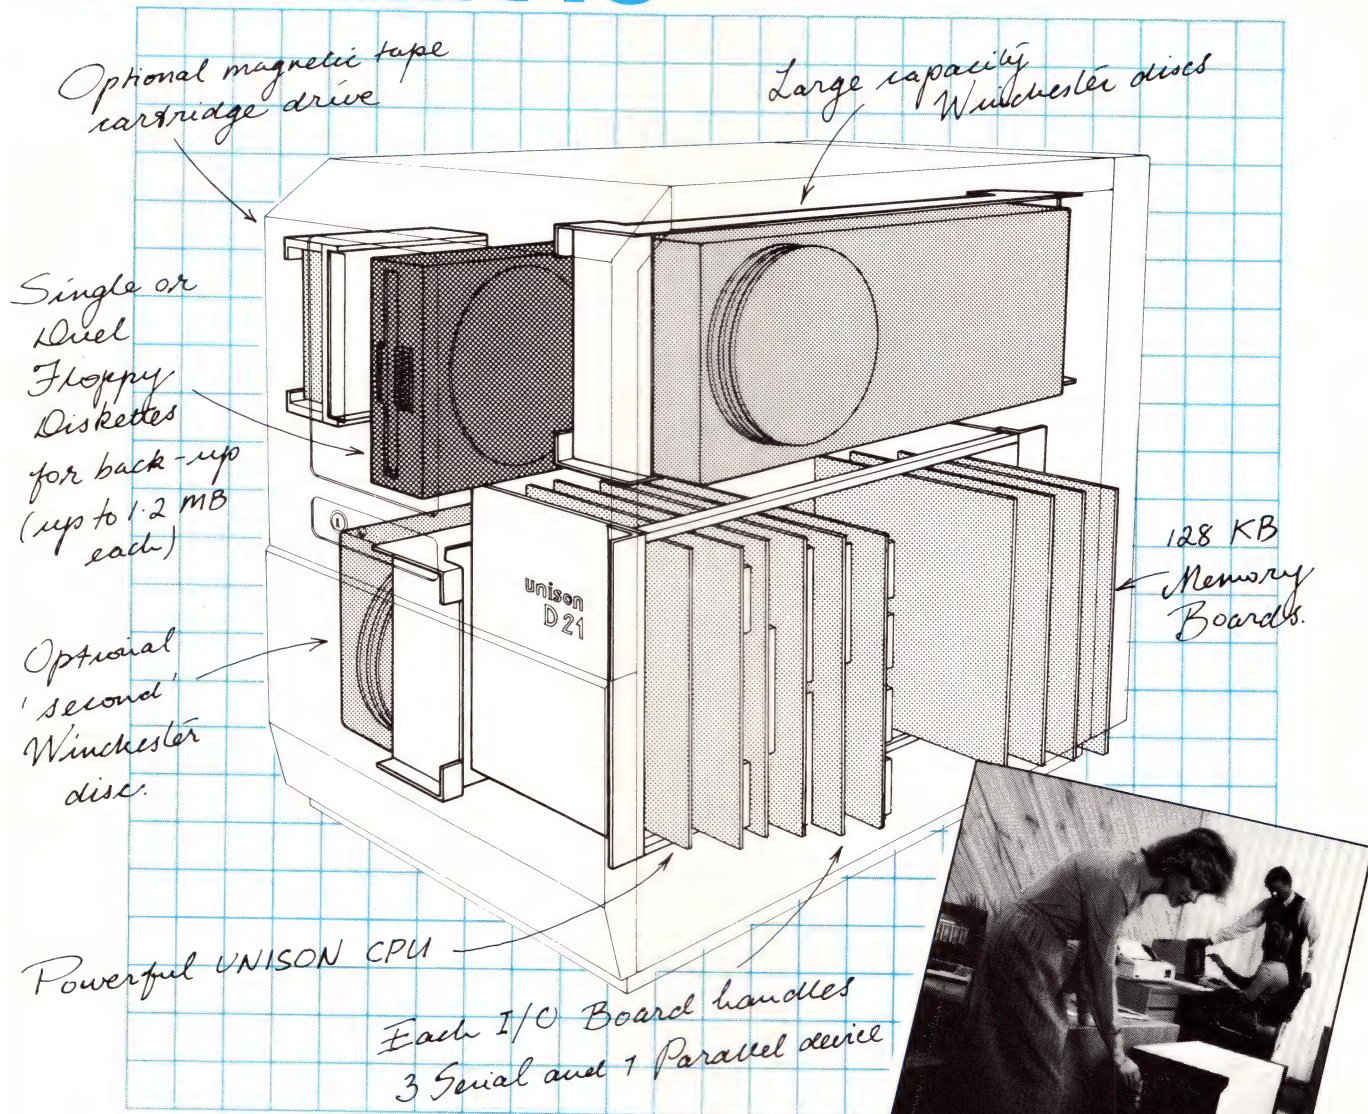 Optional magnetic tape
cartridge drive
Large capacity
Winchester discs
Single or
Duel
Floppy
Diskettes
for back-up
(up to 1.2 MB
each)
128 KB
Memory
Boards.
unison
D21
Optional
'second'
Winchester
disc.
Powerful UNISON CPU
Each I/O Board handles
3 Serial and 1 Parallel device